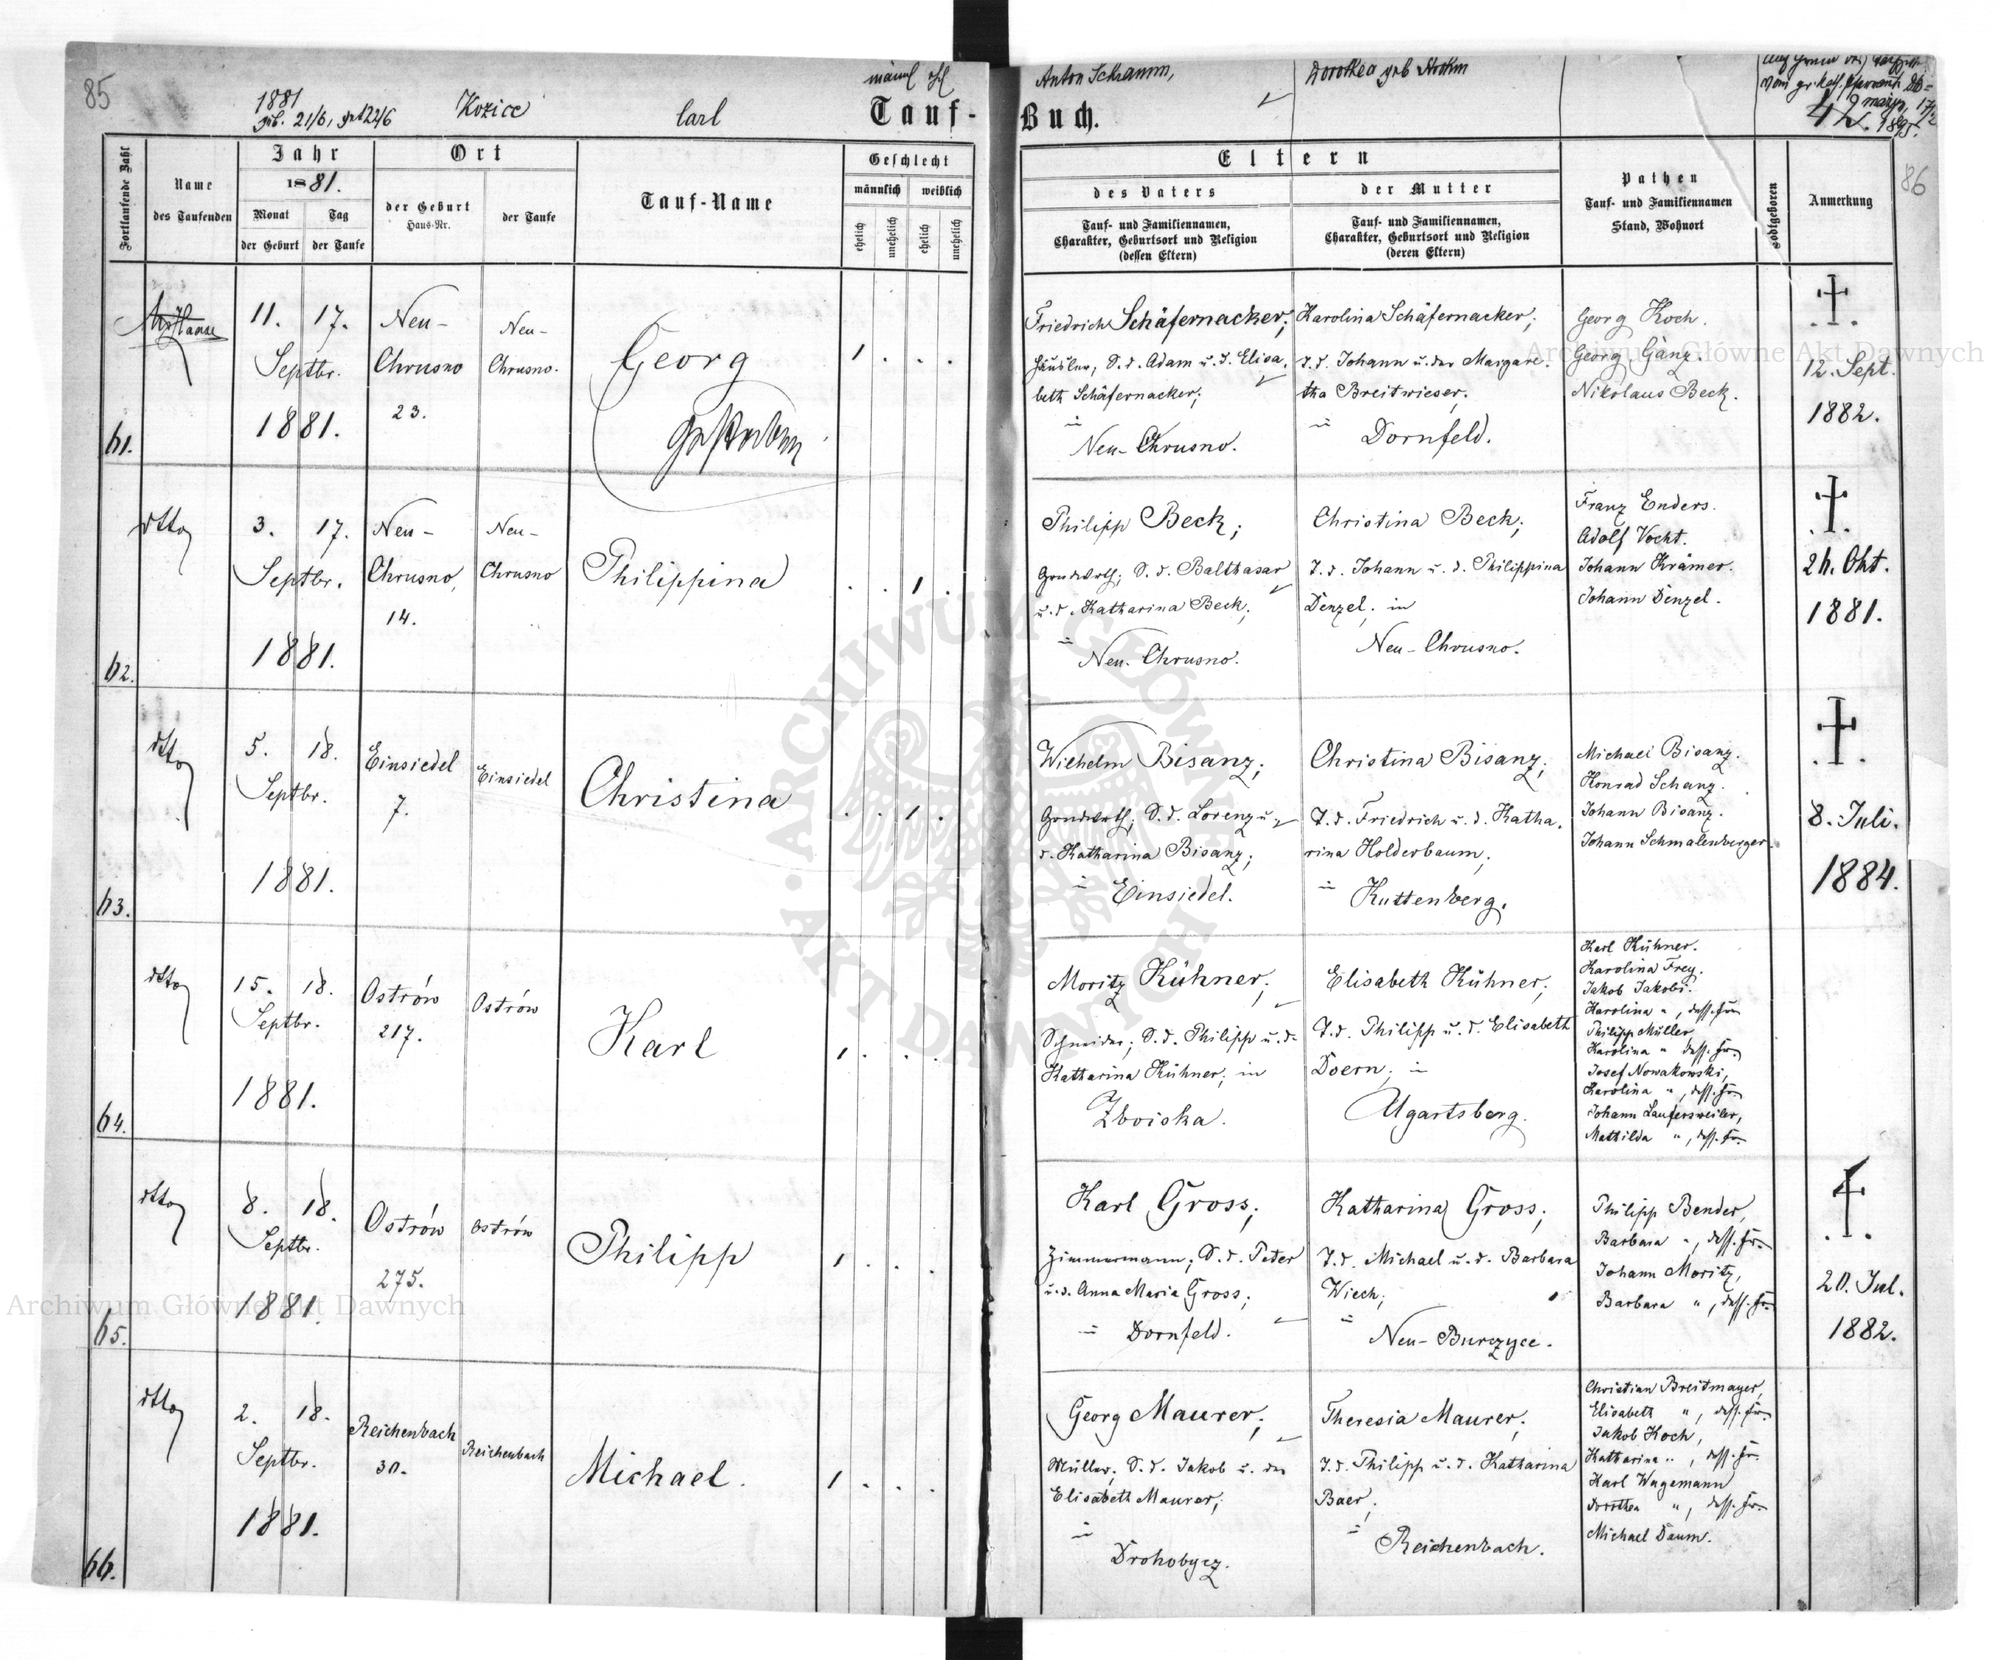 85
1881
geb. 21/6, get 22/6
Kozice
Carl
männl ehl
Tauf-
Anton Schramm,
Dorothea geb
Buch.
vom gr. kath. Pfarramte
42.
1895.
86
Fortlaufende Zahl
Name
des Taufenden
Jahr
1881.
Monat
Tag
der Geburt
der Taufe
Ort
der Geburt
Haus-Nr.
der Taufe
Tauf-Name
Geschlecht
männlich
weiblich
ehelich
unehelich
ehelich
unehelich
Eltern
des Vaters
der Mutter
Tauf- und Familiennamen,
Charakter, Geburtsort und Religion
(dessen Eltern)
Tauf- und Familiennamen,
Charakter, Geburtsort und Religion
(deren Eltern)
Pathen
Tauf- und Familiennamen
Stand, Wohnort
Todtgeboren
Anmerkung
61.
11. 17.
Septbr.
1881.
Neu-
Chrusno
23.
Neu-
Chrusno.
Georg
gestorben
1 . . .
Friedrich Schäfernacker;
Häusler, S. d. Adam u. d. Elisa.
beth Schäfernacker;
in
Neu-Chrusno.
Karolina Schäfernacker;
T. d. Johann u. der Margare.
tha Breitwieser;
in
Dornfeld.
Georg Koch.
Georg Ganz.
Nikolaus Beck.
12. Sept.
1882.
62.
dtto
3. 17.
Septbr.
1881.
Neu-
Chrusno,
14.
Neu-
Chrusno
Philippina
. . 1 .
Philipp Beck;
Grundwrth; S. d. Balthasar
u. d. Katharina Beck;
in
Neu-Chrusno.
Christina Beck;
T. d. Johann u. d. Philippina
Denzel; in
Neu-Chrusno.
Franz Enders.
Adolf Vocht.
Johann Krämer.
Johann Denzel.
26. Okt.
1881.
63.
dtto
5. 18.
Septbr.
1881.
Einsiedel
7.
Einsiedel
Christina
. . 1 .
Wilhelm Bisanz;
Grundwrth; S. d. Lorenz u.
d. Katharina Bisanz;
in
Einsiedel.
Christina Bisanz;
T. d. Friedrich u. d. Katha.
rina Holderbaum;
in
Kuttenberg.
Michael Bisanz.
Konrad Schanz.
Johann Bisanz.
Johann Schmalenberger.
8. Juli.
1884.
64.
dtto
15. 18.
Septbr.
1881.
Ostrów
217.
Ostrów
Karl
1 . . .
Moritz Kühner;
Schneider; S. d. Philipp u. d.
Katharina Kühner; in
Zboiska.
Elisabeth Kühner;
T. d. Philipp u. d. Elisabeth
Doern; in
Ugartsberg.
Karl Kühner.
Karolina Frey.
Jakob Jakobi.
Karolina ", dess. Fr.
Philipp Müller,
Karolina " dess. Fr.
Josef Nowakowski,
Karolina ", dess. Fr.
Johann Laufersweiler,
Mathilda ", dess. Fr.
65.
dtto
8. 18.
Septbr.
1881.
Ostrów
275.
Ostrów
Philipp
1 . . .
Karl Gross;
Zimmermann; S. d. Peter
u. d. Anna Maria Gross;
in Dornfeld.
Katharina Gross;
T. d. Michael u. d. Barbara
Wiech;
in
Neu-Burczyce.
Philipp Bender,
Barbara ", dess. Fr.
Johann Moritz,
Barbara ", dess. Fr.
20. Jul.
1882.
66.
dtto
2. 18.
Septbr.
1881.
Reichenbach
30.
Reichenbach
Michael.
1 . . .
Georg Maurer;
Müller; S. d. Jakob u. der
Elisabeth Maurer;
in
Drohobycz.
Theresia Maurer;
T. d. Philipp u. d. Katharina
Baer;
in
Reichenbach.
Christian Breitmayer,
Elisabeth ", dess. Fr.
Jakob Koch,
Katharina ", dess. Fr.
Karl Wagemann
Dorothea ", dess. Fr.
Michael Daum.
Archiwum Główne Akt Dawnych
Archiwum Główne Akt Dawnych
ARCHIWUM GŁÓWNE AKT DAWNYCH